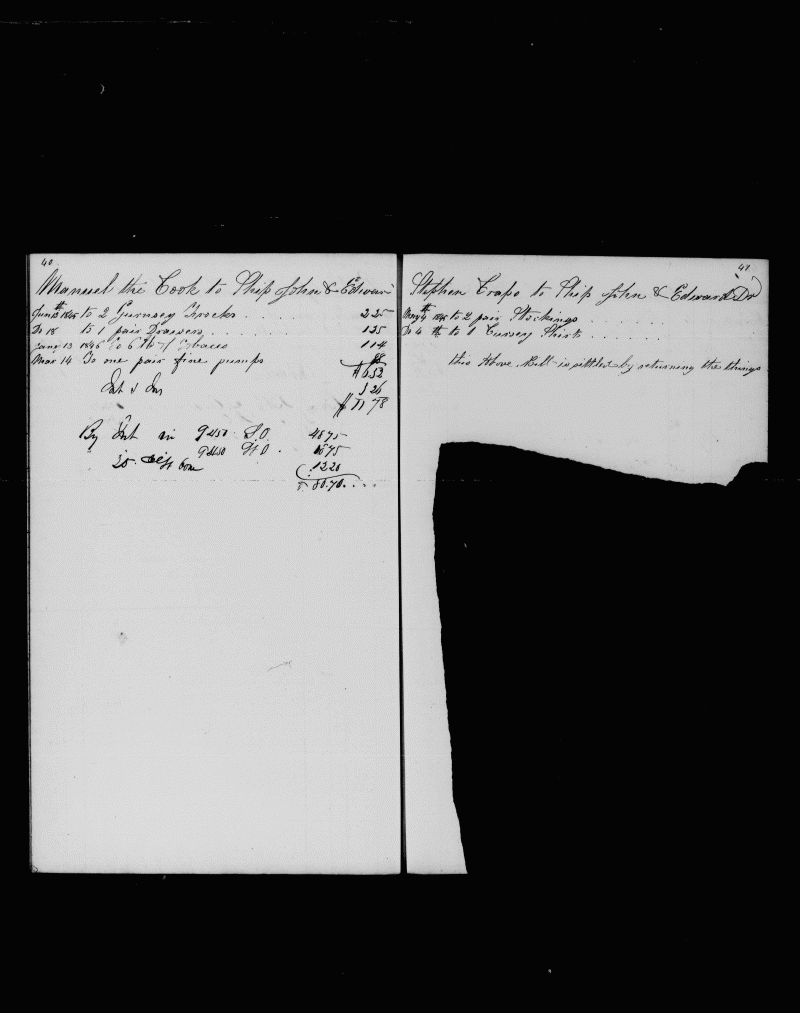 40
Manuel the Cook to Ship John & Edward
June 1845 to 2 Guernsey Shrocks . . . 225
Do 18 to 1 pair Drawers . . . 125
Jany 13 1846 To 6 lb of Tobacco 114
Mar 14 To one pair fine pumps
$6 52
5 26
$11 78
By in 9450 S.O. 4875
9450 W O .
12.20
80.70 . . .
41
Stephen Crapo to Ship John & Edward Dr
May 4th to 2 pair Stockings . . . . . .
Do 4 th to 1 Gurnsey Shirts . . . . . .
this Above Bill is settled by returning the things